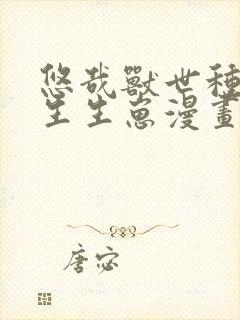 悠哉獸世種
生生崽漫畫
唐宓